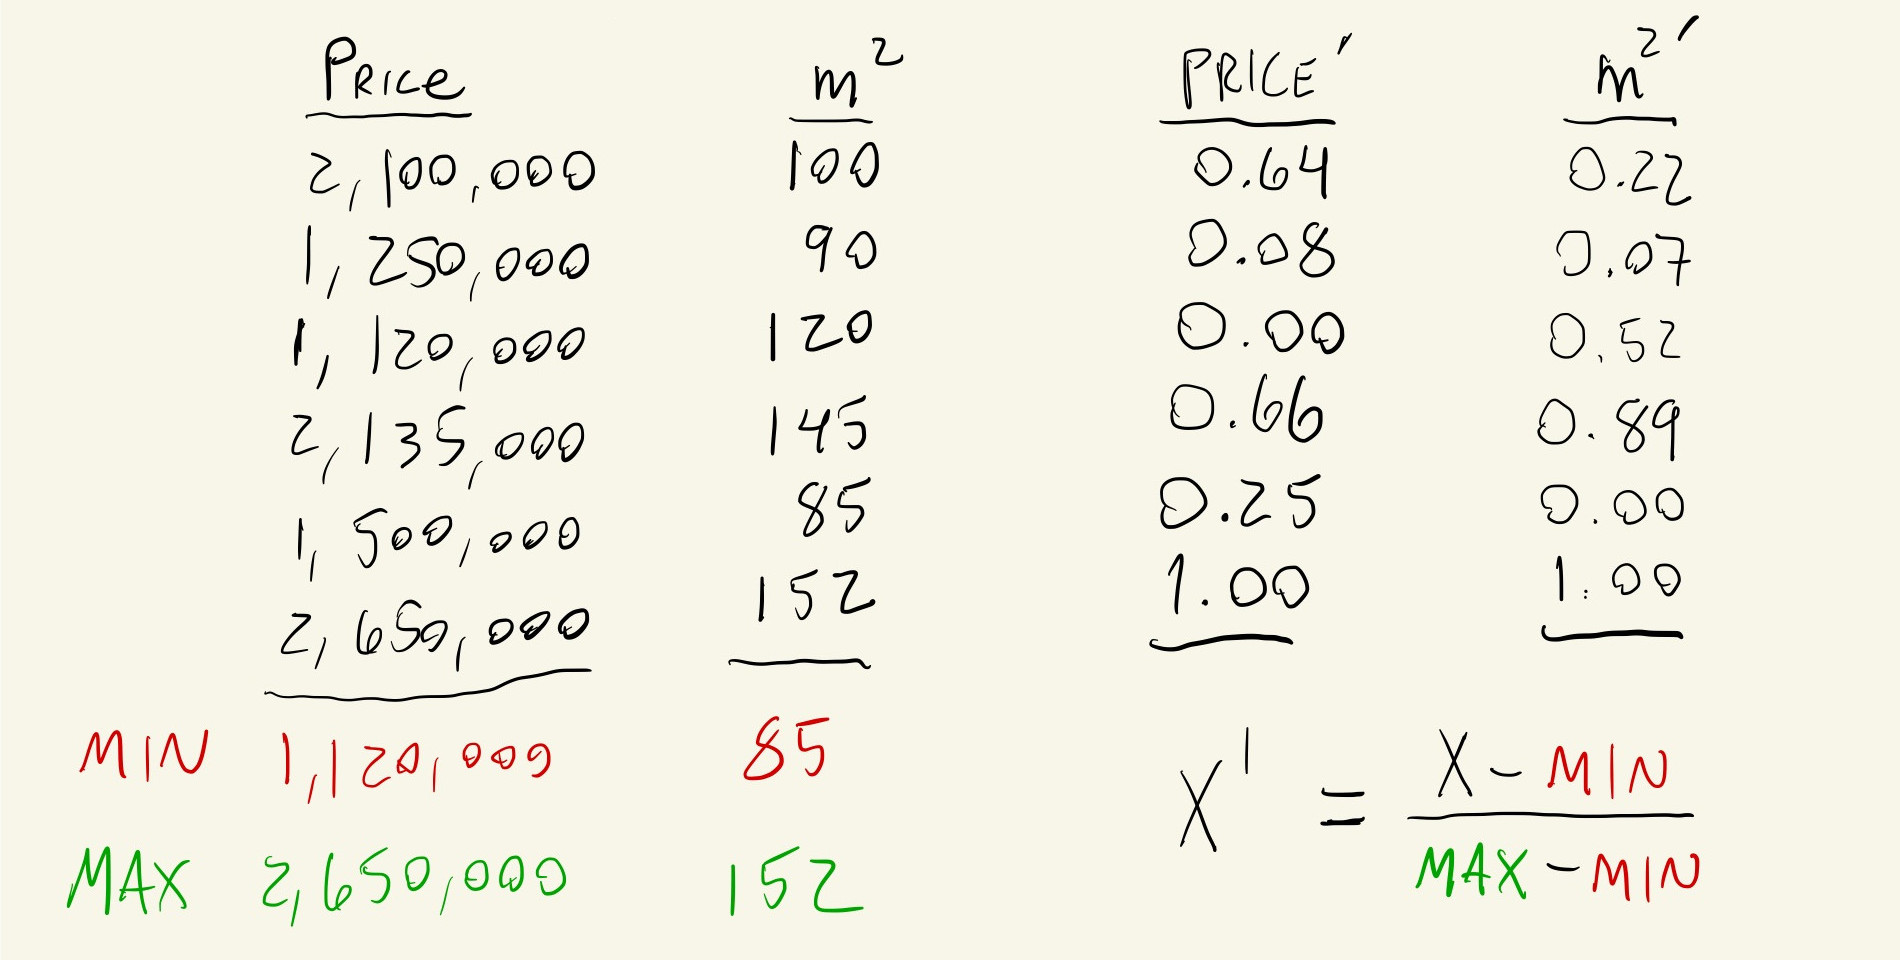 PRICE m² PRICE' m²'
2,100,000 100 0.64 0.22
1,250,000 90 0.08 0.07
1,120,000 120 0.00 0.52
2,135,000 145 0.66 0.89
1,500,000 85 0.25 0.00
2,650,000 152 1.00 1.00
MIN 1,120,000 85
X' = X - MIN
MAX - MIN
MAX 2,650,000 152